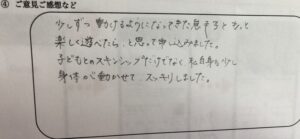 ④ ご意見ご感想など
少しずつ動けるようになってきた息子ともっと
楽しく遊べたら、と思って申し込みました。
子どもとのスキンシップだけでなく、私自身も少し
身体が動かせて、スッキリしました。